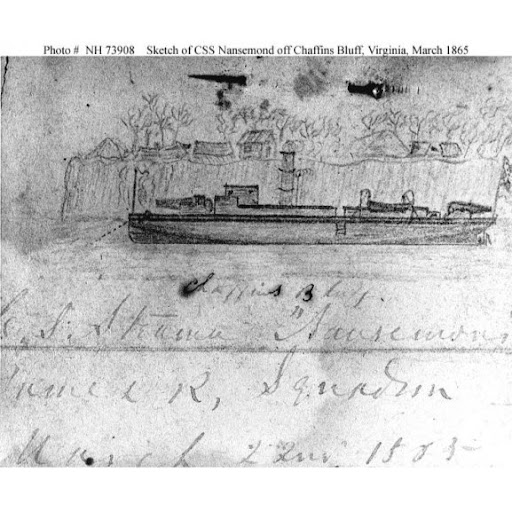 Photo # NH 73908 Sketch of CSS Nansemond off Chaffins Bluff, Virginia, March 1865
Chaffins Bluff.
S. Steamer "Nansemond
James R, Squadron
March 22nd 1865